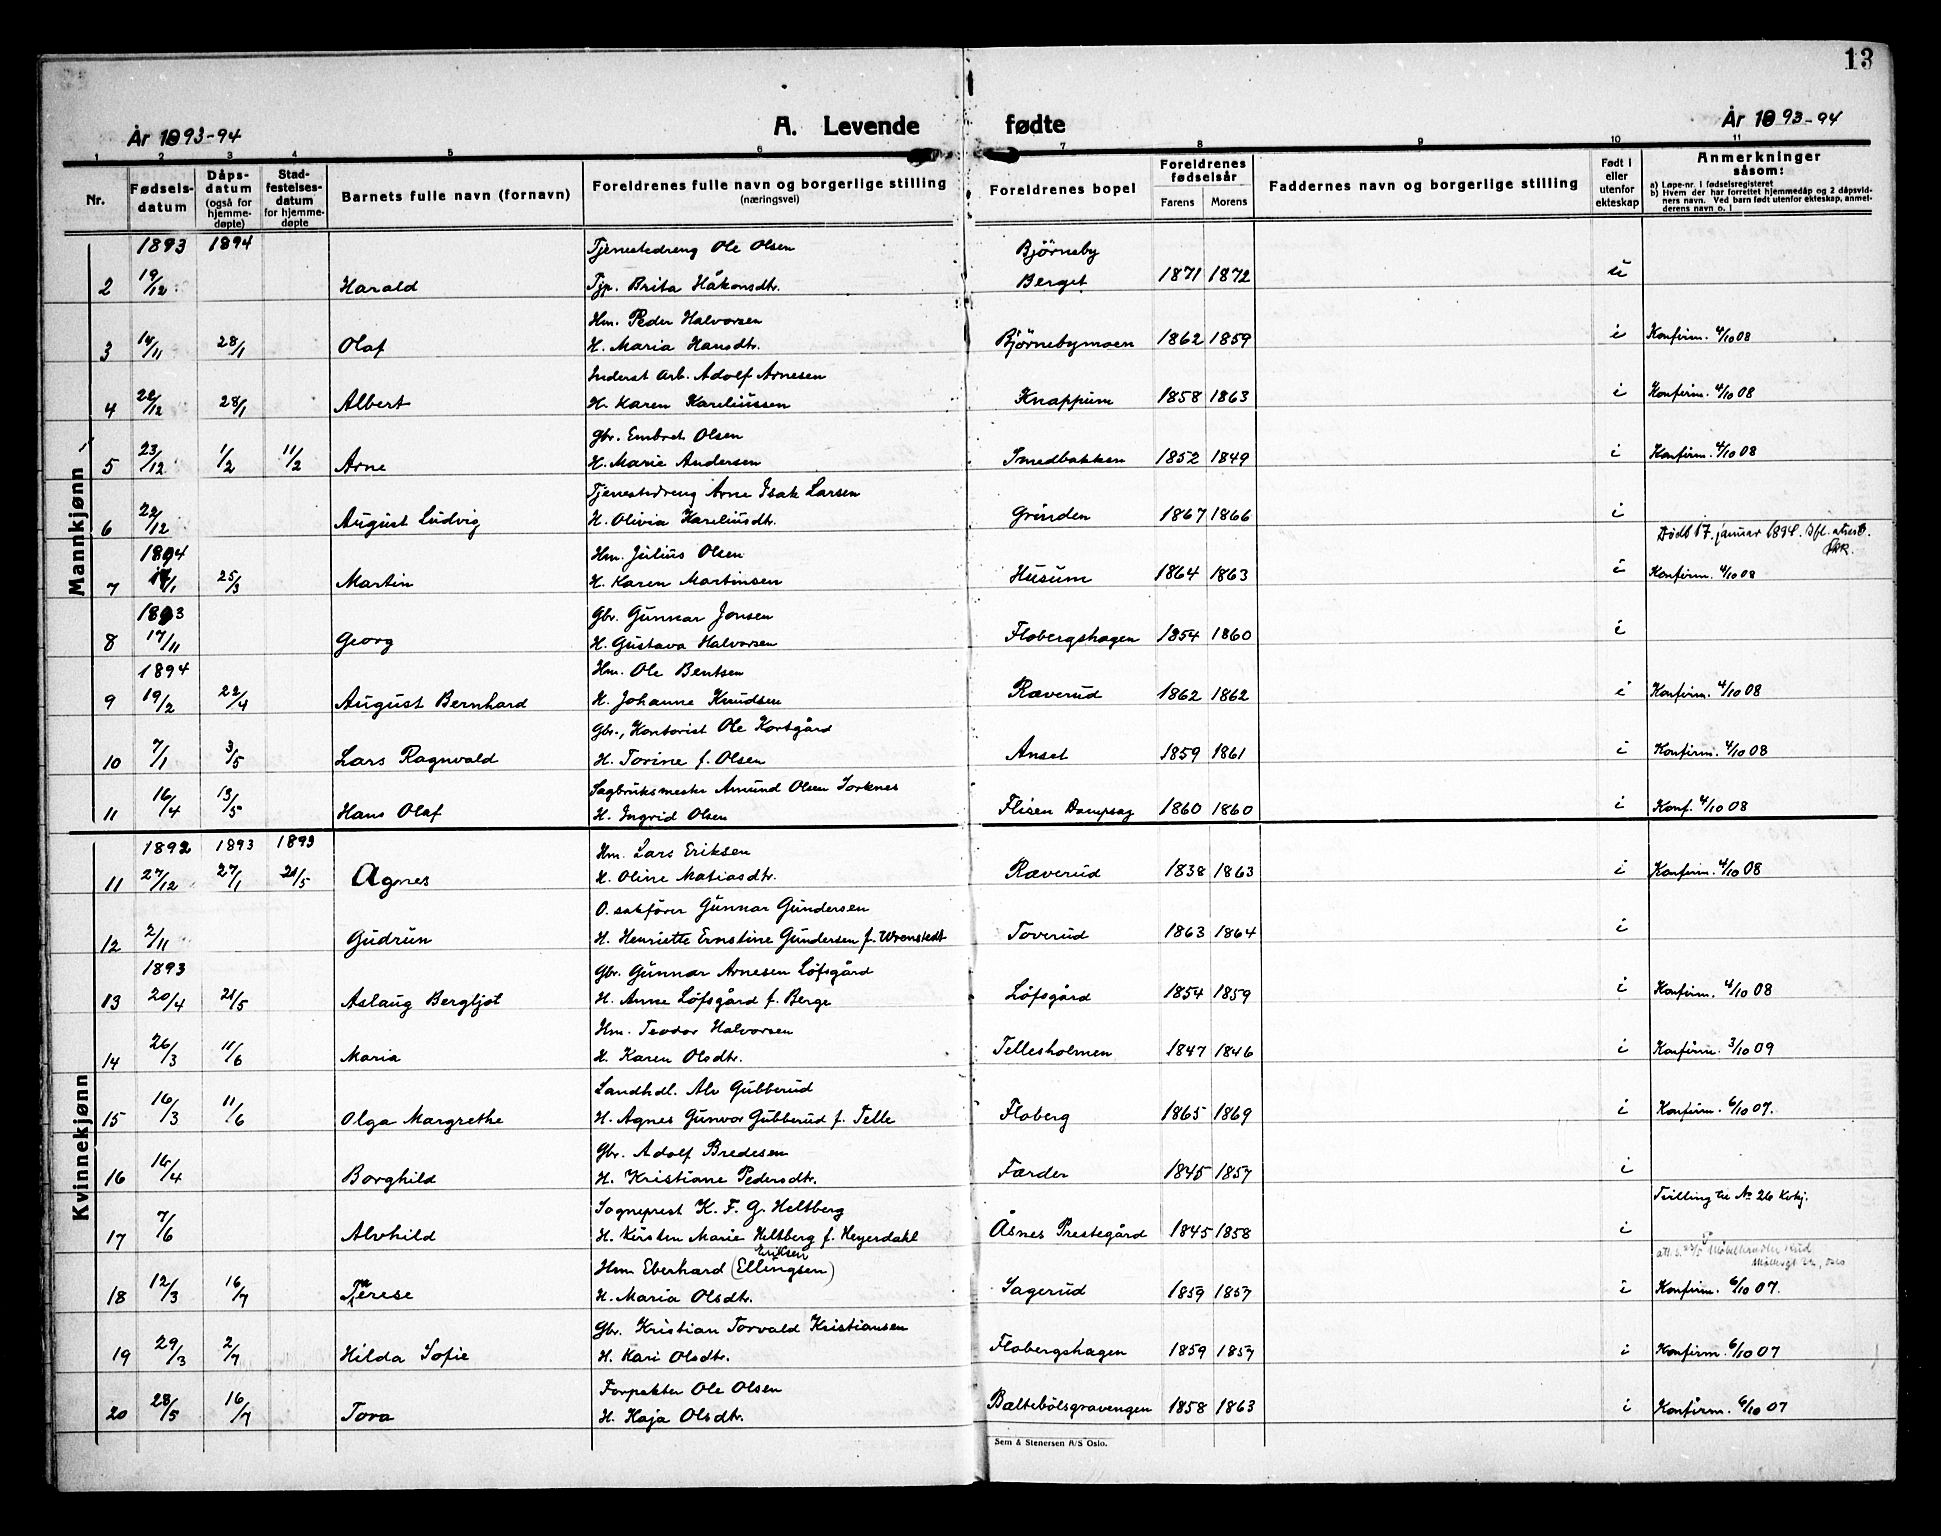 13
År 1893-94 A. Levende fødte År 1893-94
1 2 3 4 5 6 7 8 9 10 11
Nr. Fødselsdatum Dåpsdatum (også for hjemmedøpte) Stadfestelsesdatum for hjemmedøpte Barnets fulle navn (fornavn) Foreldrenes fulle navn og borgerlige stilling (næringsvei) Foreldrenes bopel Foreldrenes fødselsår Farens Morens Faddernes navn og borgerlige stilling Født i eller utenfor ekteskap Anmerkninger såsom: a) Løpe-nr. i fødselsregisteret b) Hvem der har forrettet hjemmedåp og 2 dåpsvidners navn. Ved barn født utenfor ekteskap, anmelderens navn o. l
Mannkjønn
1893 1894 Tjenestedreng Ole Olsen Bjørneby
2 19/12 Harald Tjp. Brita Håkonsdtr. Berget 1871 1872 u
Hm. Peder Halvorsen
3 14/11 28/1 Olaf H. Maria Hansdtr. Bjørnebymoen 1862 1859 i Konfirm. 4/10 08
Inderst Arb. Adolf Arnesen
4 22/12 28/1 Albert H. Karen Kareliussen Knappum 1858 1863 i Konfirm. 4/10 08
Gbr. Embret Olsen
5 23/12 1/2 11/2 Arne H. Marie Andersen Smedbakken 1852 1849 i Konfirm. 4/10 08
Tjenestedreng Arne Isak Larsen
6 22/12 August Ludvig H. Olivia Kareliusdtr. Grinden 1867 1866 i
Død 17. januar 1894. Sfl. attest
1894 Hm. Julius Olsen
7 /1 25/3 Martin H. Karen Martinsen Husum 1864 1863 i Konfirm. 4/10 08
1893 Gbr. Gunnar Jonsen
8 17/11 Georg H. Gustava Halvorsen Flobergshagen 1854 1860 i
1894 Hm. Ole Bentsen
9 19/2 22/4 August Bernhard H. Johanne Knudsen Ræverud 1862 1862 i Konfirm. 4/10 08
Gbr., Kontorist Ole Kortgård
10 7/1 3/5 Lars Ragnvald H. Torine f. Olsen Anset 1859 1861 i Konfirm. 4/10 08
Sagbruksmester Amund Olsen Sorknes
11 16/4 13/5 Hans Olaf H. Ingrid Olsen Flisen Dampsag 1860 1860 i Konf. 4/10 08
Kvinnekjønn
1892 1893 1893 Hm. Lars Eriksen
11 27/12 27/1 21/5 Agnes H. Oline Matiasdtr. Ræverud 1838 1863 i Konfirm. 4/10 08
O. sakfører Gunnar Gundersen
12 2/11 Gudrun H. Henriette Ernstine Gundersen f. Wrenstedt Toverud 1863 1864 i
1893 Gbr. Gunnar Arnesen Løfsgård
13 20/4 21/5 Aslaug Bergljot H. Anne Løfsgård f. Berge Løfsgård 1854 1859 i Konfirm. 4/10 08
Hm. Teodor Halvorsen
14 26/3 11/6 Maria H. Karen Olsdtr. Tellesholmen 1847 1846 i Konfirm. 3/10 09
Landhdl. Alv Gubberud
15 16/3 11/6 Olga Margrethe H. Agnes Gunvor Gubberud f. Telle Floberg 1865 1869 i Konfirm. 6/10 07.
Gbr. Adolf Bredesen
16 16/4 Borghild H. Kristiane Pedersdtr. Færder 1845 1857 i
Sogneprest K. F. G. Heltberg Tvilling til No 26 Kvkj.
17 7/6 Alvhild H. Kirsten Marie Heltberg f. Heyerdahl Åsnes Prestegård 1845 1858 i
Eriksen
Hm Eberhard (Ellingsen)
18 12/3 16/7 Terese H. Maria Olsdtr. Sagerud 1859 1857 i Konfirm. 6/10 07.
Gbr. Kristian Torvald Kristiansen
19 29/3 2/7 Hilda Sofie H. Kari Olsdtr. Flobergshagen 1859 1857 i Konfirm. 6/10 07
Forpakter Ole Olsen
20 28/5 16/7 Tora H. Kaja Olsdtr. Bæltebølsgravengen 1858 1863 i Konfirm. 6/10 07
Sem & Stenersen A/S Oslo.